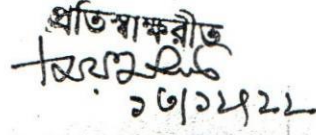 প্রতিস্বাক্ষরীত
১৩/১২/২২